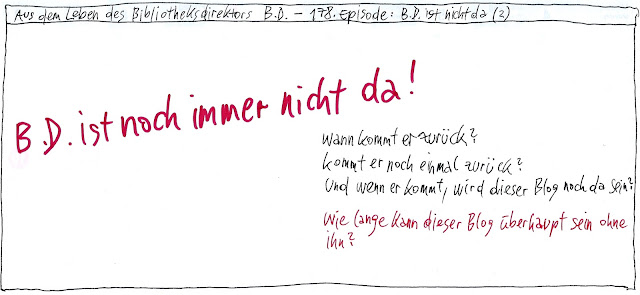 Aus dem Leben des Bibliotheksdirektors B.D. – 178. Episode: B.D. ist nicht da (2)
B.D. ist noch immer nicht da!
Wann kommt er zurück?
Kommt er noch einmal zurück?
Und wenn er kommt, wird dieser Blog noch da sein?
Wie lange kann dieser Blog überhaupt sein ohne
ihn?